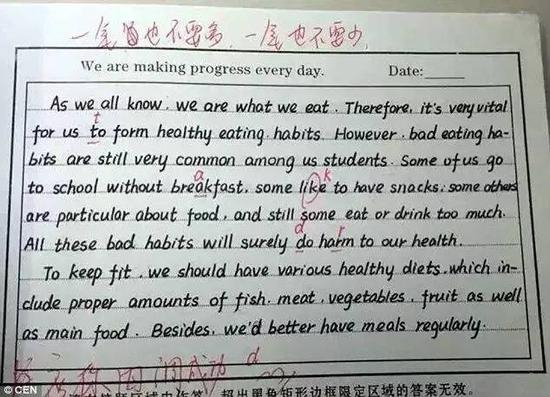 一笔也不要多，一笔也不要少
We are making progress every day. Date:
As we all know, we are what we eat. Therefore, it's very vital
t
for us to form healthy eating habits. However, bad eating ha-
bits are still very common among us students. Some of us go
a k
to school without breakfast, some like to have snacks; some others
are particular about food, and still some eat or drink too much.
d r
All these bad habits will surely do harm to our health.
To keep fit, we should have various healthy diets, which in-
clude proper amounts of fish, meat, vegetables, fruit as well
as main food. Besides, we'd better have meals regularly.
d
超出黑色矩形边框限定区域的答案无效。
© CEN